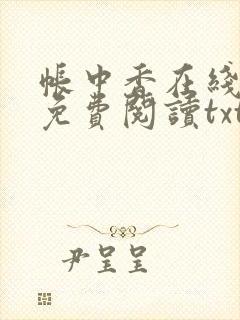 帳中香在綫
免費閱讀txt
尹呈呈